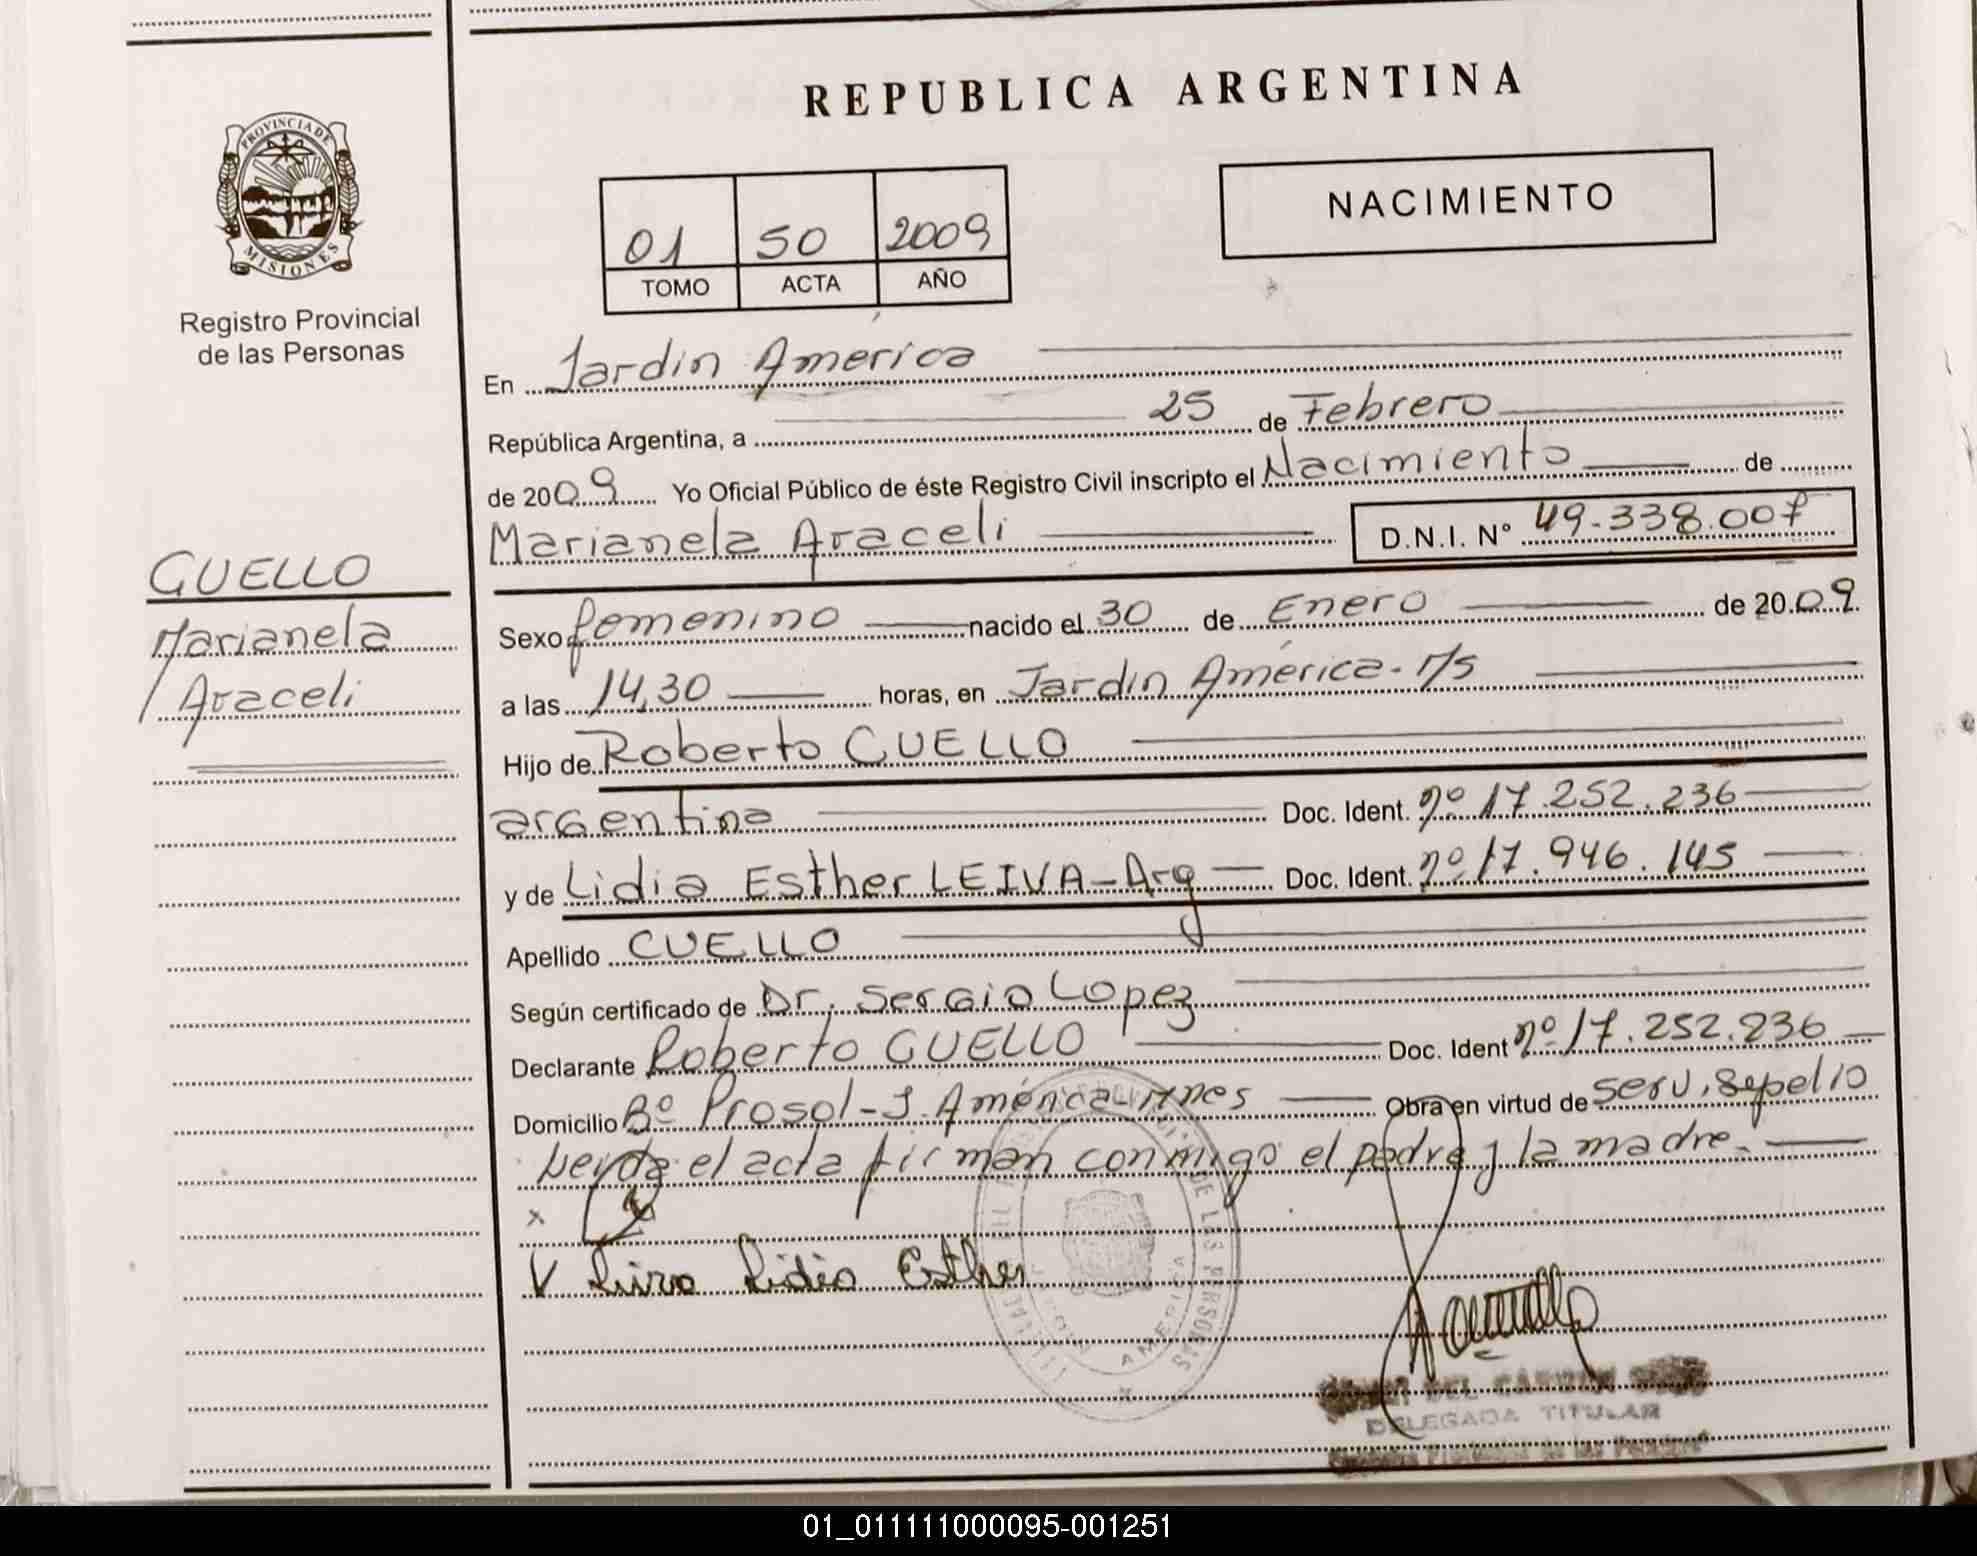 REPUBLICA ARGENTINA
PROVINCIA DE
MISIONES
Registro Provincial
de las Personas
01 50 2009
TOMO ACTA AÑO
NACIMIENTO
En Jardin América
República Argentina, a 25 de Febrero
de 2009 Yo Oficial Público de éste Registro Civil inscripto el Nacimiento de
Marianela Araceli D.N.I. N° 49.338.007
CUELLO
Marianela
Araceli
Sexo femenino nacido el 30 de Enero de 2009.
a las 14,30 horas, en Jardin América-
Hijo de Roberto CUELLO
argentina Doc. Ident. nº 17.252.236
y de Lidia Esther LEIVA-Arg Doc. Ident. nº 17.946.145
Apellido CUELLO
Según certificado de Dr. Sergio Lopez
Declarante Roberto CUELLO Doc. Ident nº 17.252.236
Domicilio Bº Prosol-J. América- Obra en virtud de serv. Sepelio
Leyda el acta firman conmigo el padre y la madre.
x
Leiva Lidia Esther
DE LAS PERSONAS
AMERICA
DEL CARMEN
DELEGADA TITULAR
01_011111000095-001251